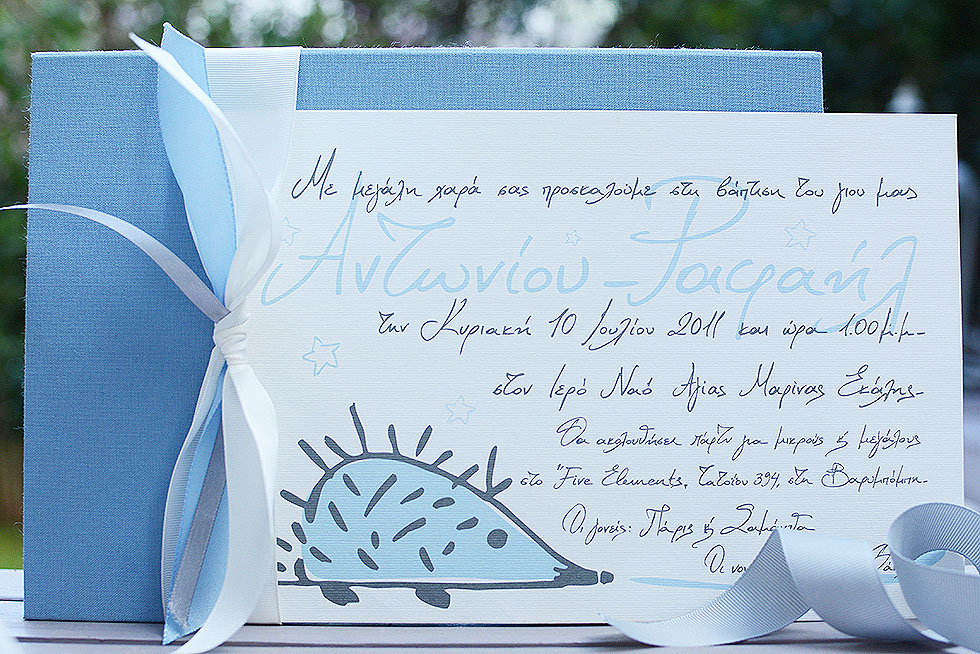 Με μεγάλη χαρά σας προσκαλούμε στη βάπτιση του γιου μας
Αντωνίου - Ραφαήλ
την Κυριακή 10 Ιουλίου 2011 και ώρα 1.00μ.μ.
στον Ιερό Ναό Αγίας Μαρίνας Εκάλης.
Θα ακολουθήσει πάρτυ για μικρούς ή μεγάλους
στο "Five Elements, Τατοΐου 394, στη Βαρυμπόμπη.
Οι γονείς: Πάρις ή Σαμάνθα
Οι